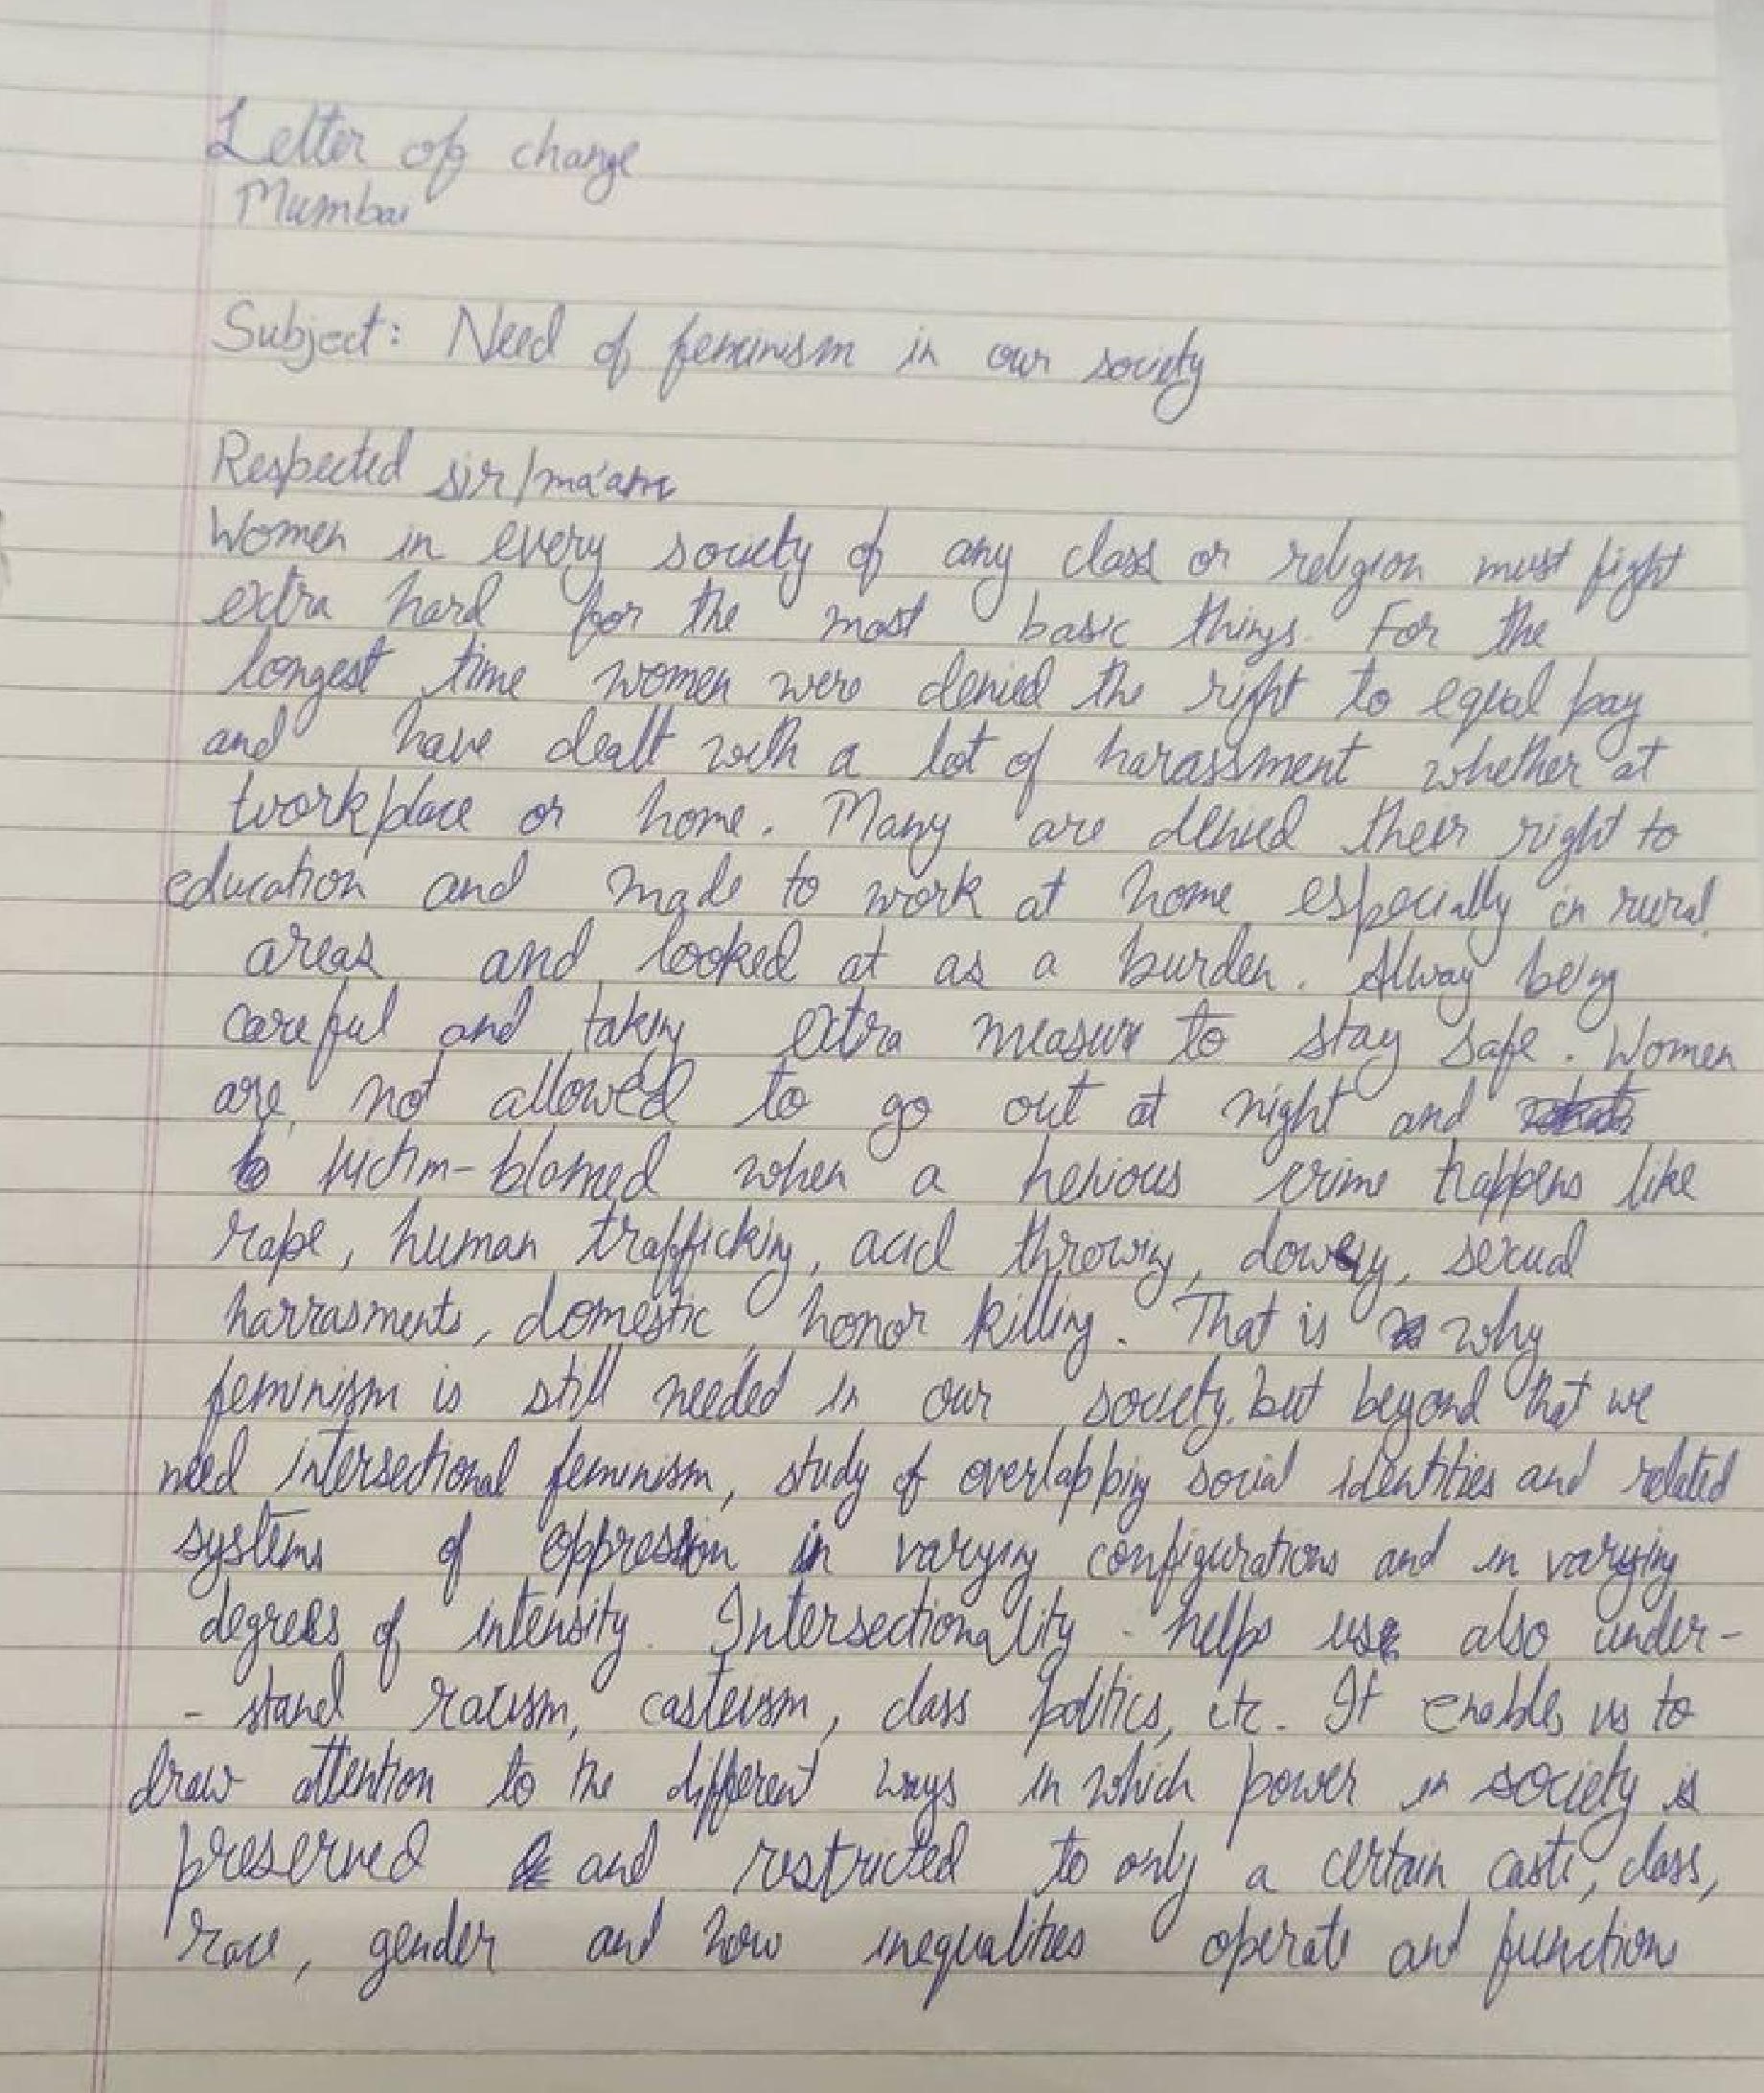 Letter of change
Mumbai
Subject: Need of feminism in our society
Respected sir/ma'am
Women in every society of any class or religion must fight
extra hard for the most basic things. For the
longest time women were denied the right to equal pay
and have dealt with a lot of harassment whether at
workplace or home. Many are denied their right to
education and made to work at home especially in rural
areas and looked at as a burden. Alway being
careful and taking extra measure to stay safe. Women
are not allowed to go out at night and
to victim-blamed when a henious crime happens like
rape, human trafficking, acid throwing, dowery, sexual
harrasments, domestic, honor killing. That is why
feminism is still needed in our society. but beyond that we
need intersectional feminism, study of overlapping social identities and related
systems of oppression in varying configurations and in varying
degrees of intensity. Intersectionality helps us also under-
- stand racism, casteism, class politics, etc. It enables us to
draw attention to the different ways in which power in society is
preserved and restricted to only a certain caste, class,
race, gender and how inequalities operate and functions